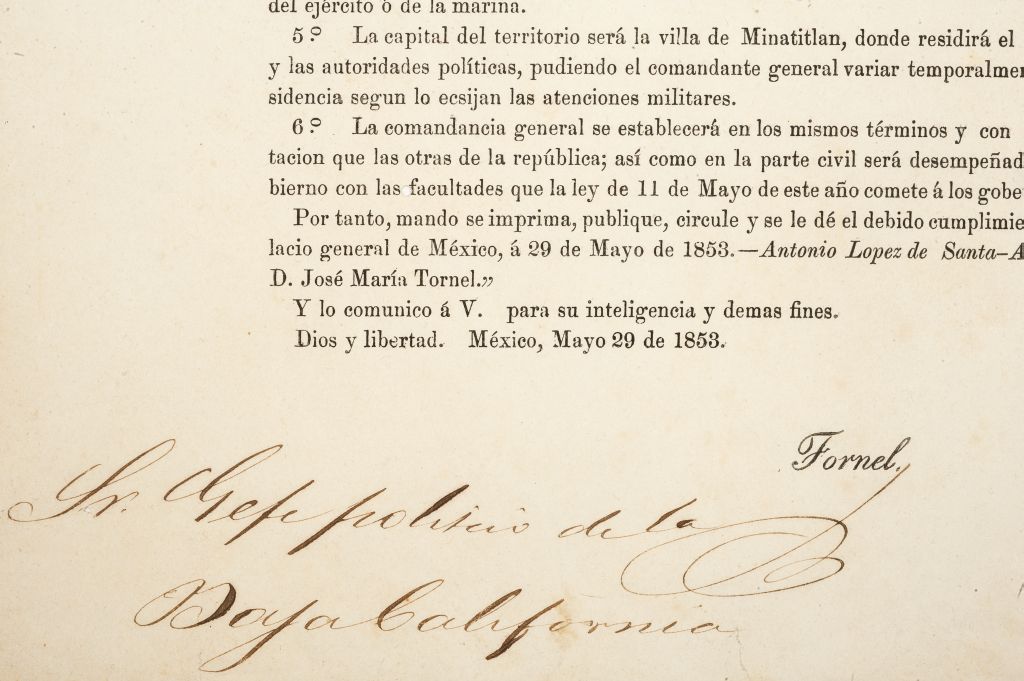 del ejército ó de la marina.
5.º La capital del territorio será la villa de Minatitlan, donde residirá el
y las autoridades políticas, pudiendo el comandante general variar temporalmen
sidencia segun lo ecsijan las atenciones militares.
6.º La comandancia general se establecerá en los mismos términos y con
tacion que las otras de la república; así como en la parte civil será desempeñad
bierno con las facultades que la ley de 11 de Mayo de este año comete á los gobe
Por tanto, mando se imprima, publique, circule y se le dé el debido cumplimie
lacio general de México, á 29 de Mayo de 1853.—Antonio Lopez de Santa-A
D. José María Tornel.”
Y lo comunico á V. para su inteligencia y demas fines.
Dios y libertad. México, Mayo 29 de 1853.
Tornel.
Sr. Gefe politico de la
Baja California